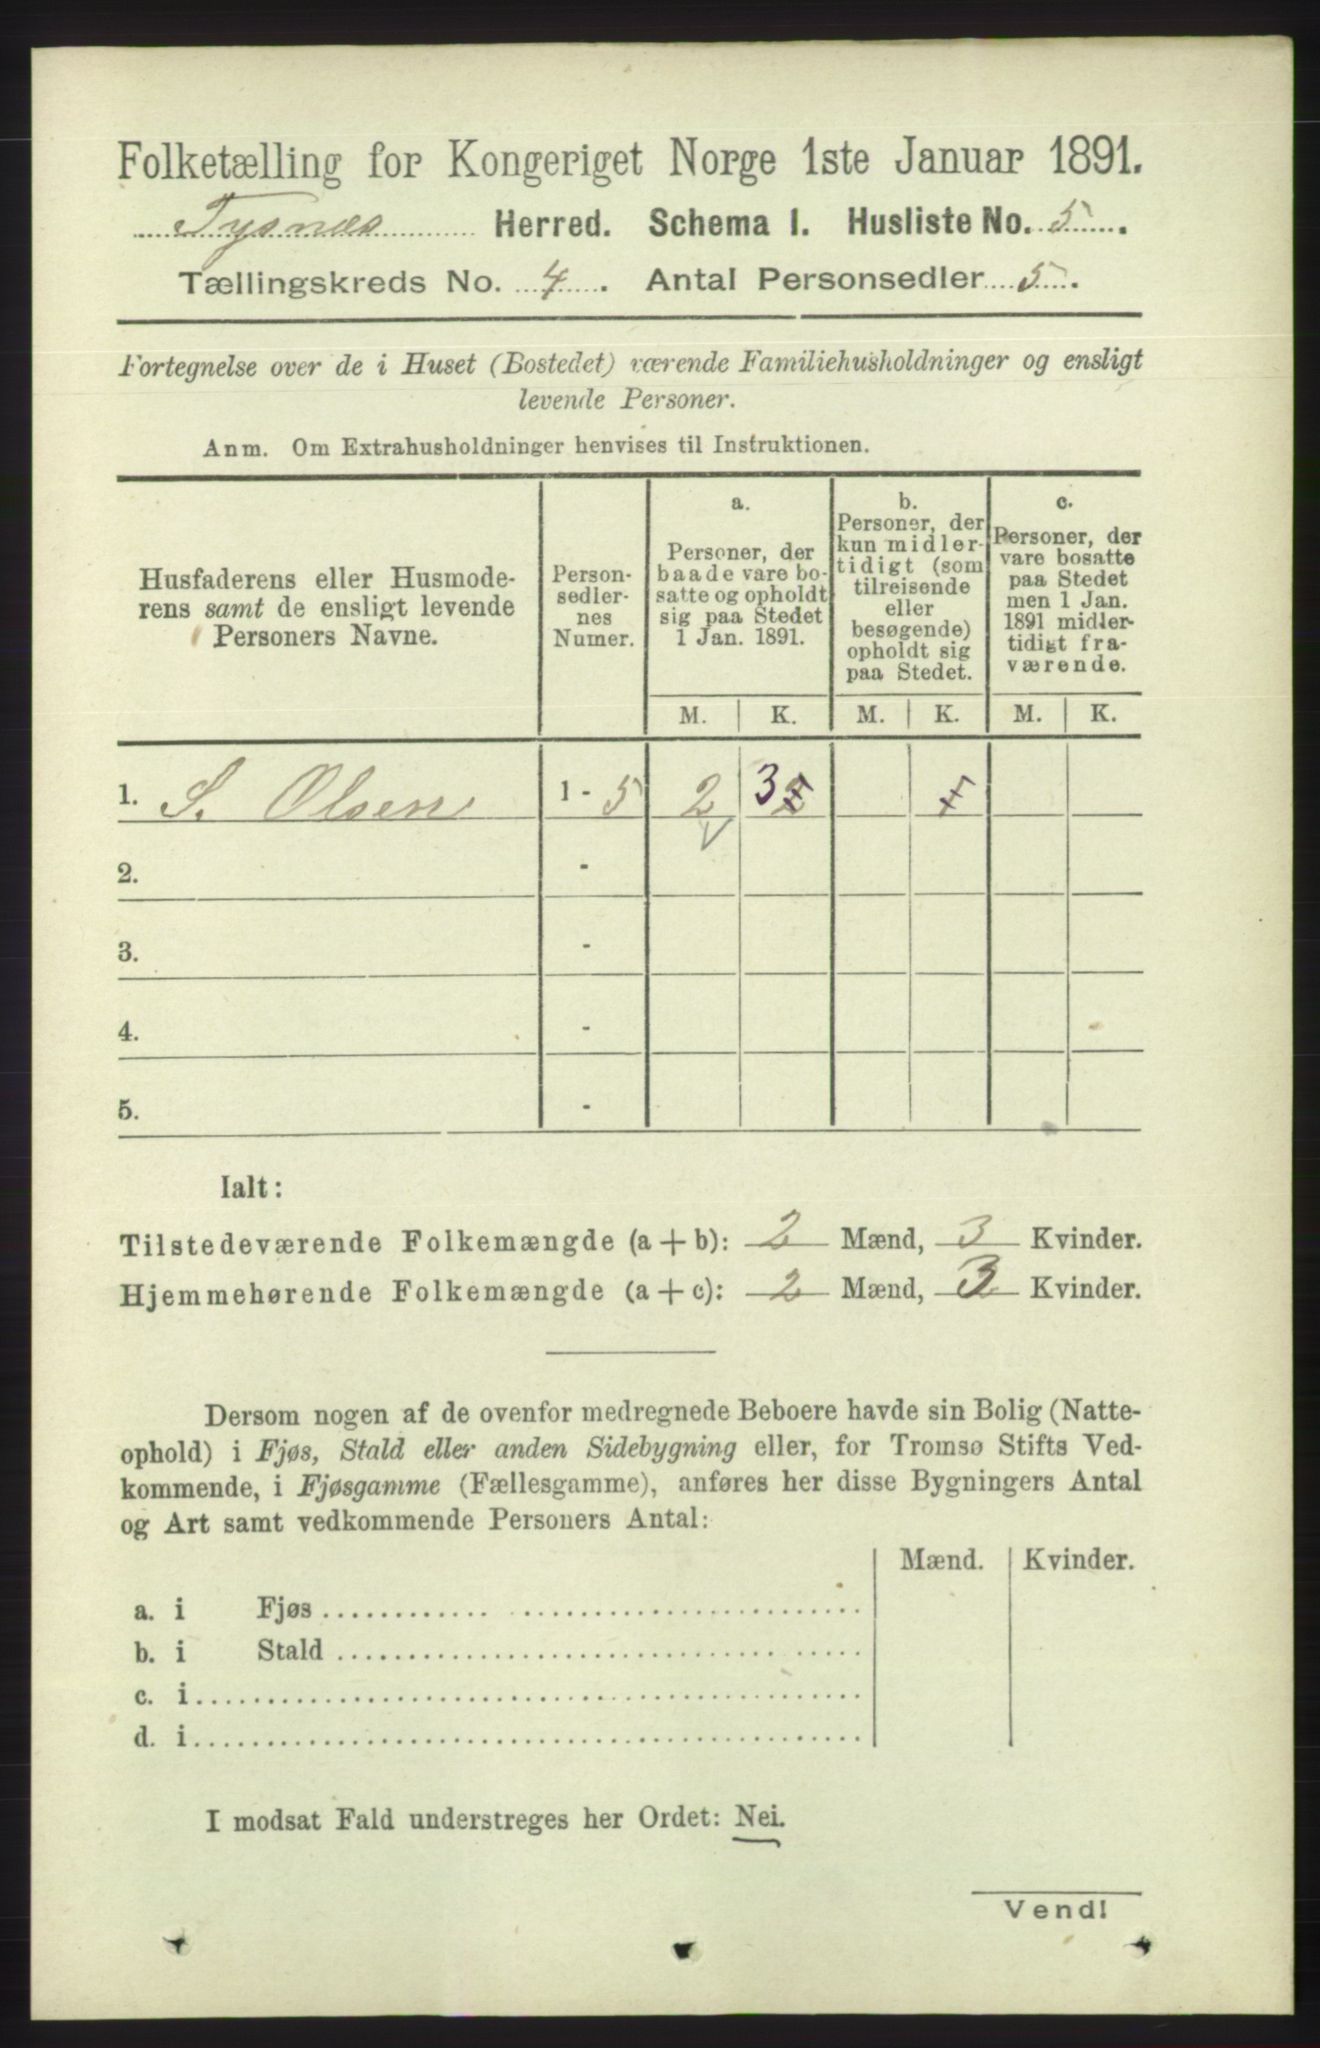 Folketælling for Kongeriget Norge 1ste Januar 1891.
Tysnæs Herred. Schema I. Husliste No. 5.
Tællingskreds No. 4. Antal Personsedler 5.
Fortegnelse over de i Huset (Bostedet) værende Familiehusholdninger og ensligt
levende Personer.
Anm. Om Extrahusholdninger henvises til Instruktionen.
Husfaderens eller Husmode-
rens samt de ensligt levende
Personers Navne.
Person-
sedler-
nes
Numer.
a.
Personer, der
baade vare bo-
satte og opholdt
sig paa Stedet
1 Jan. 1891.
b.
Personer, der
kun midler-
tidigt (som
tilreisende
eller
besøgende)
opholdt sig
paa Stedet.
c.
Personer, der
vare bosatte
paa Stedet
men 1 Jan.
1891 midler-
tidigt fra-
værende.
M. K. M. K. M. K.
1. S. Olsen 1 - 5 2 3 2 1
2. -
3. -
4. -
5. -
Ialt:
Tilstedeværende Folkemængde (a + b): 2 Mænd, 3 Kvinder.
Hjemmehørende Folkemængde (a + c): 2 Mænd, 3 Kvinder.
Dersom nogen af de ovenfor medregnede Beboere havde sin Bolig (Natte-
ophold) i Fjøs, Stald eller anden Sidebygning eller, for Tromsø Stifts Ved-
kommende, i Fjøsgamme (Fællesgamme), anføres her disse Bygningers Antal
og Art samt vedkommende Personers Antal:
Mænd. Kvinder.
a. i Fjøs
b. i Stald
c. i
d. i
I modsat Fald understreges her Ordet: Nei.
Vend!